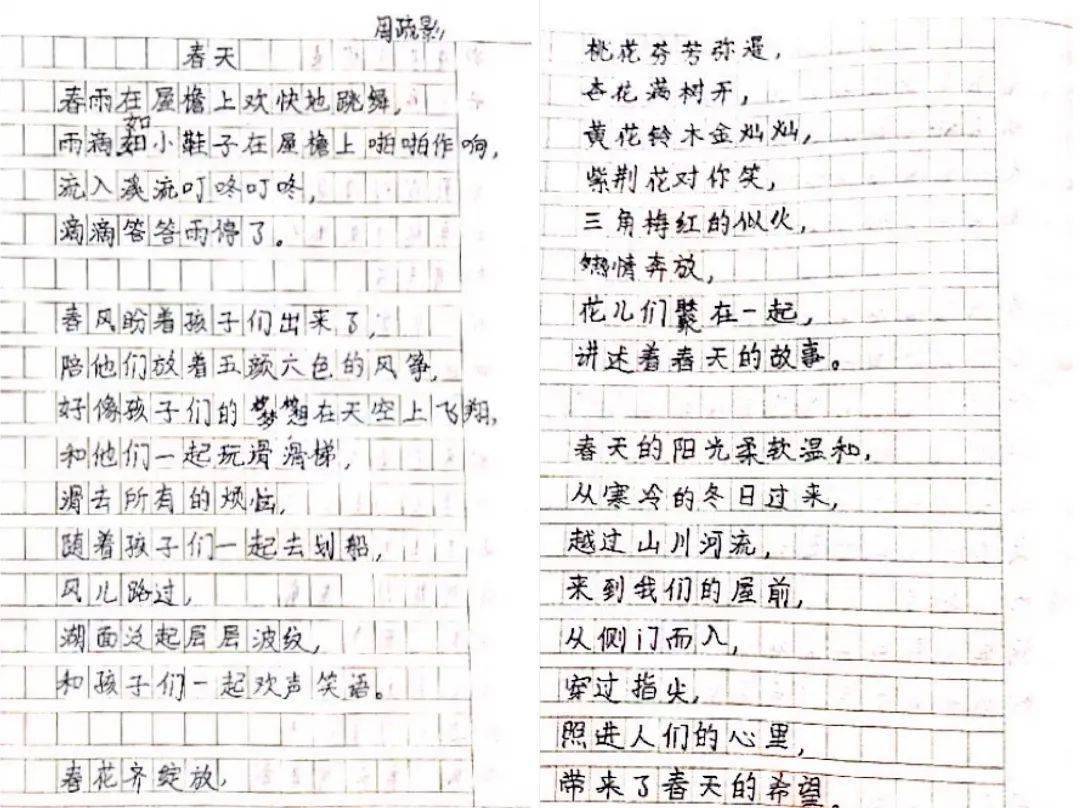 周疏影
春天
春雨在屋檐上欢快地跳舞,
雨滴如小鞋子在屋檐上啪啪作响,
流入溪流叮咚叮咚,
滴滴答答雨停了。
春风盼着孩子们出来了,
陪他们放着五颜六色的风筝,
好像孩子们的梦想在天空上飞翔,
和他们一起玩滑滑梯,
滑去所有的烦恼,
随着孩子们一起去划船,
风儿路过,
湖面泛起层层波纹,
和孩子们一起欢声笑语。
春花齐绽放,
桃花芬芳弥漫,
杏花满树开,
黄花铃木金灿灿,
紫荆花对你笑,
三角梅红的似火,
热情奔放,
花儿们聚在一起,
讲述着春天的故事。
春天的阳光柔软温和,
从寒冷的冬日过来,
越过山川河流,
来到我们的屋前,
从侧门而入,
穿过指尖,
照进人们的心里,
带来了春天的希望。